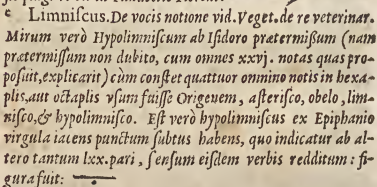 c Limniſcus. De vocis notione vid. Veget. de re veterinar.
Mirum verò Hypolimniſcum ab Iſidoro prætermiſſum (nam
prætermiſſum non dubito, cum omnes xxvj. notas quas pro-
poſuit, explicarit) cùm conſtet quattuor omnino notis in hexa-
plis, aut octaplis vſum fuiſſe Origenem, aſteriſco, obelo, lim-
niſco, & hypolimniſco. Eſt verò hypolimniſcus ex Epiphanio
virgula iacens punctum ſubtus habens, quo indicatur ab al-
tero tantum lxx. pari, ſenſum eiſdem verbis redditum: fi-
gura fuit: